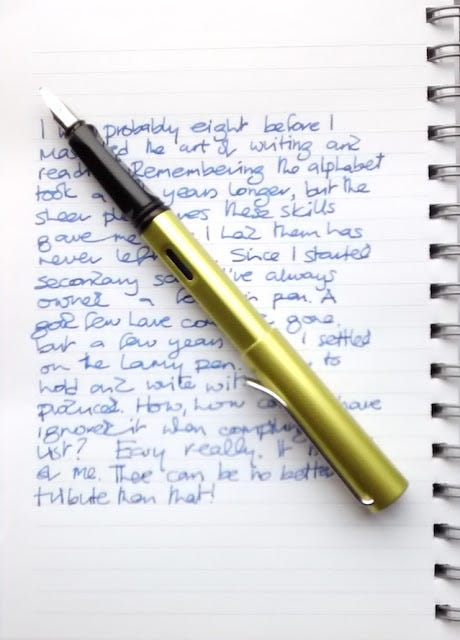 I probably eight before I
the art of writing and
Remembering the alphabet
took a years longer, but the
sheer these skills
gave me I had them has
never left Since I started
secondary I've always
owned a pen. A
good few have come gone,
but a few years I settled
on the Lamy pen. to
hold and write with
produced. How, how have
ignored it when compiling
list? Easy really. It
of me. There can be no better
tribute than that!